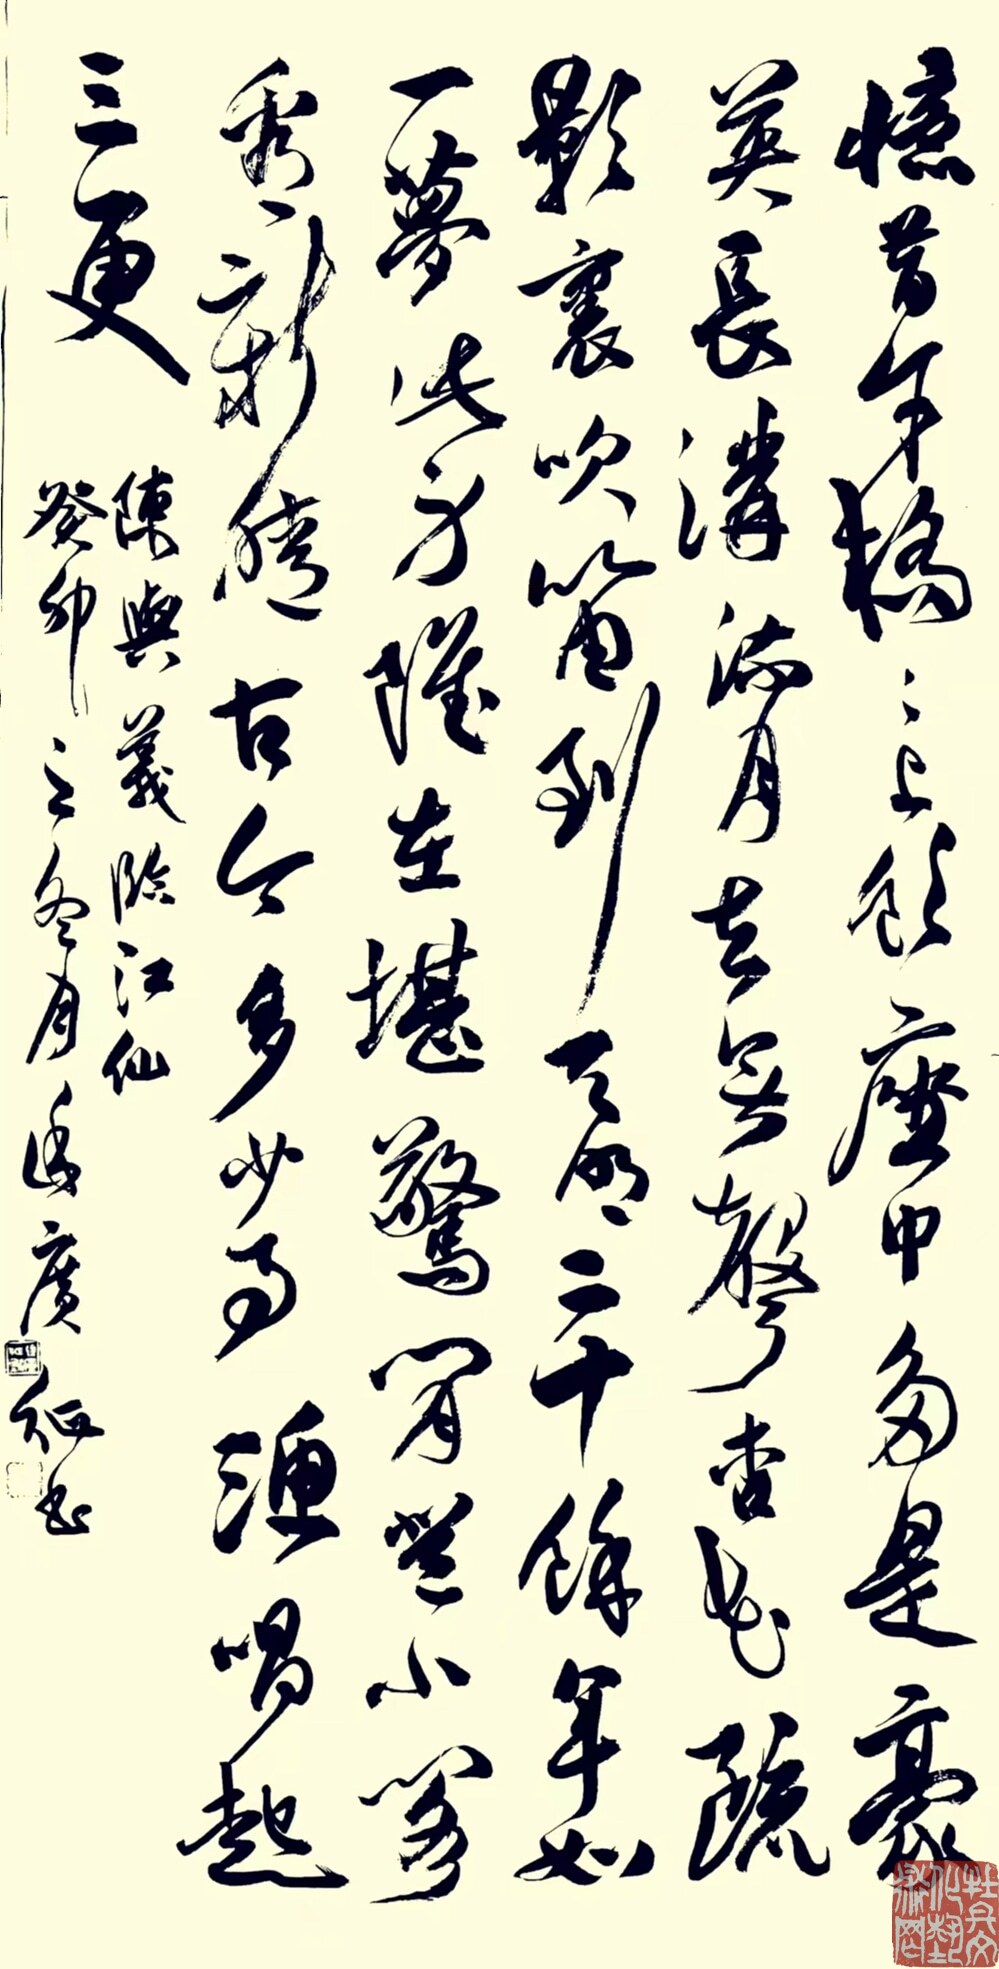 憶昔午橋〻上飲座中多是豪
英長溝流月去無聲杏花疏
影裏吹笛到天明二十餘年如
一夢此身雖在堪驚閒登小閣
看新晴古今多少事漁唱起
三更
陳與義臨江仙
癸卯之冬月廣征書